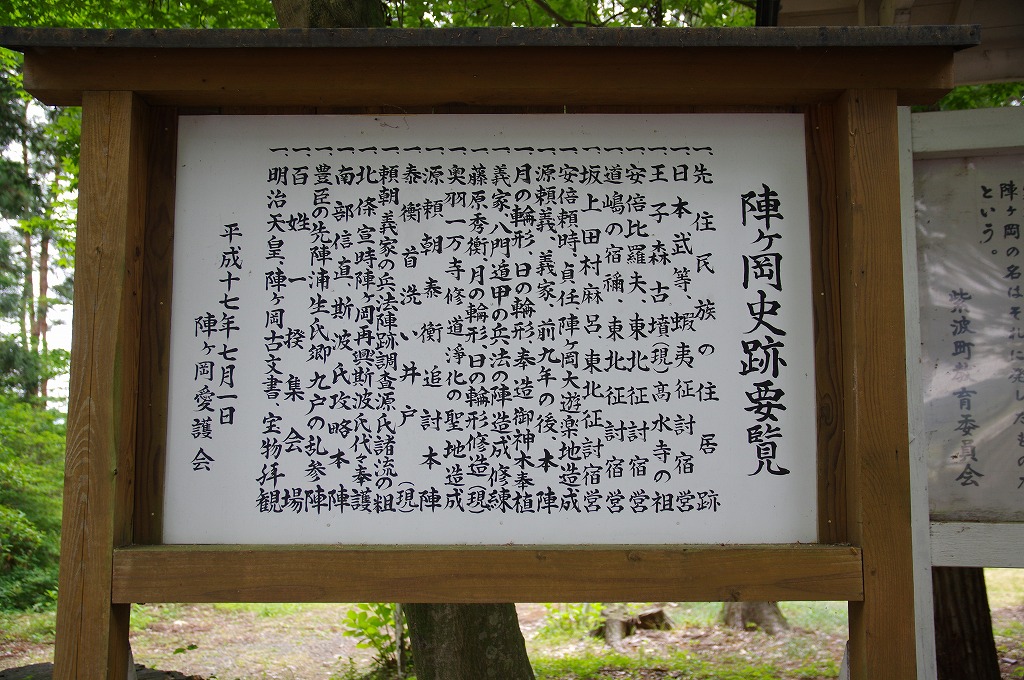 陣ヶ岡史跡要覧
一、先住民族の住居跡
一、日本武等、蝦夷征討宿営
一、王子森古墳(現)高水寺の祖
一、安倍比羅夫、東北征討宿営
一、道嶋の宿禰、東北征討宿営
一、坂上田村麻呂東北征討宿営
一、安倍頼時、貞任、陣ヶ岡大遊楽地造成
一、源頼義、義家、前九年の後、本陣
一、月の輪形、日の輪形、奉造御神木奉植
一、義家、八門遁甲の兵法の陣造成修練
一、藤原秀衡、月の輪形日の輪形修造(現)
一、奥羽一万寺修道浄化の聖地造成
一、源頼朝泰衡追討本陣
一、泰衡首洗い井戸(現)
一、頼朝義家の兵法陣跡調査源氏諸流の粗
一、北條宣時陣ヶ岡再興斯波氏代々奉護
一、南部信直、斯波氏攻略本陣
一、豊臣の先陣蒲生氏郷、九戸の乱参陣
一、百姓一揆集会場
一、明治天皇、陣ヶ岡古文書、宝物拝観
平成十七年七月一日
陣ヶ岡愛護会
陣ヶ岡の名はそれに発したもの
という。
紫波町教育委員会